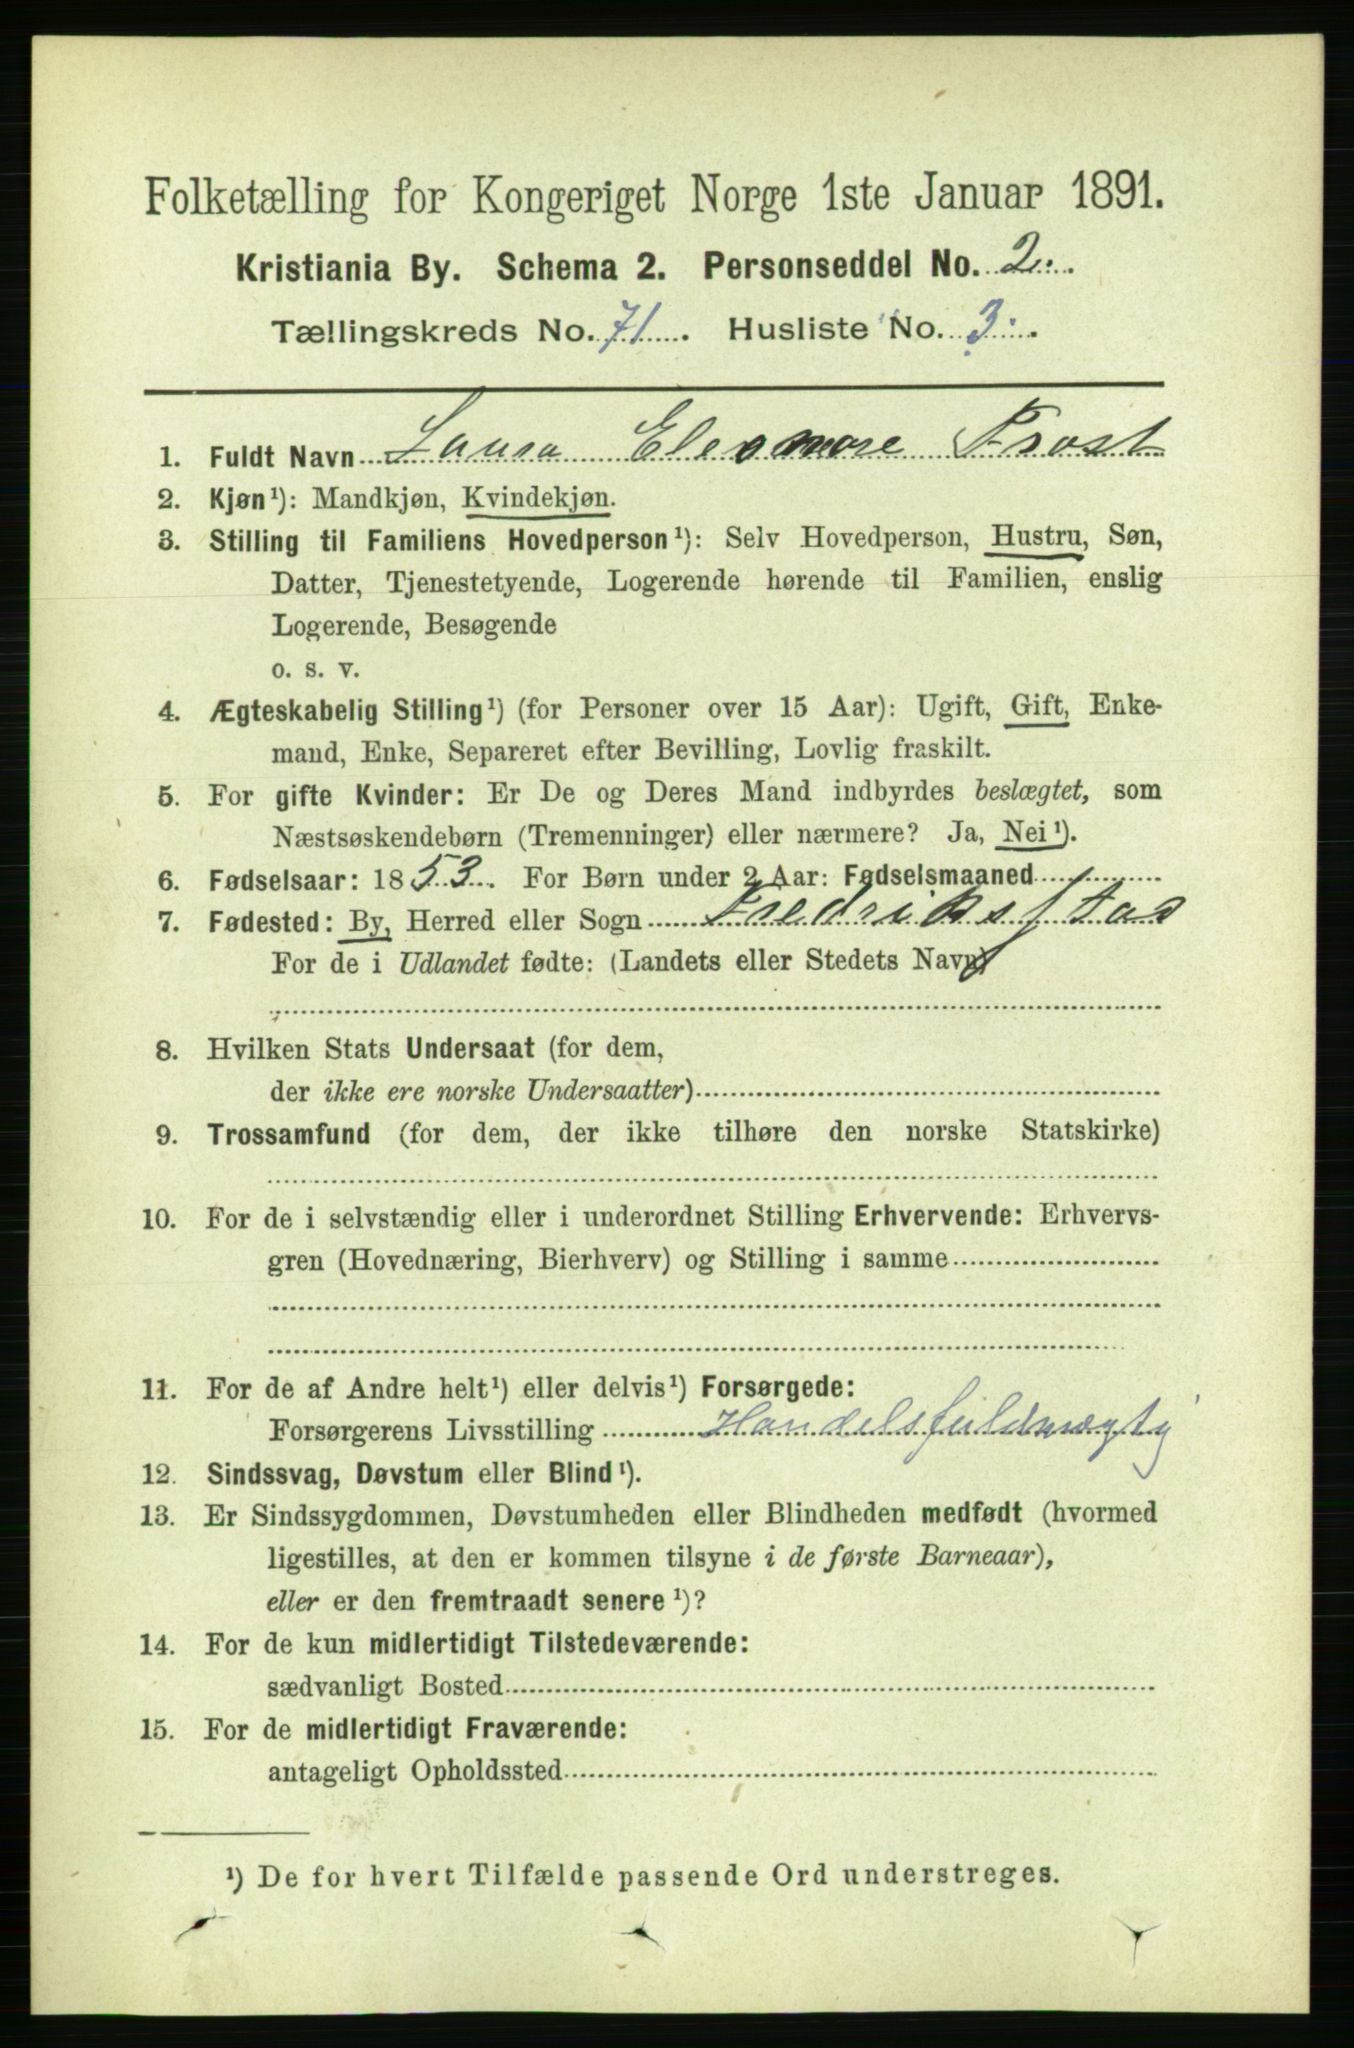 Folketælling for Kongeriget Norge 1ste Januar 1891.
Kristiania By. Schema 2. Personseddel No. 2.
Tællingskreds No. 71. Husliste No. 3.
1. Fuldt Navn Laura Eleonore Frost
2. Kjøn¹): Mandkjøn, Kvindekjøn.
3. Stilling til Familiens Hovedperson¹): Selv Hovedperson, Hustru, Søn,
Datter, Tjenestetyende, Logerende hørende til Familien, enslig
Logerende, Besøgende
o. s. v.
4. Ægteskabelig Stilling¹) (for Personer over 15 Aar): Ugift, Gift, Enke-
mand, Enke, Separeret efter Bevilling, Lovlig fraskilt.
5. For gifte Kvinder: Er De og Deres Mand indbyrdes beslægtet, som
Næstsøskendebørn (Tremenninger) eller nærmere? Ja, Nei¹).
6. Fødselsaar: 1853. For Børn under 2 Aar: Fødselsmaaned
7. Fødested: By, Herred eller Sogn Fredrikstad
For de i Udlandet fødte: (Landets eller Stedets Navn)
8. Hvilken Stats Undersaat (for dem,
der ikke ere norske Undersaatter)
9. Trossamfund (for dem, der ikke tilhøre den norske Statskirke)
10. For de i selvstændig eller i underordnet Stilling Erhvervende: Erhvervs-
gren (Hovednæring, Bierhverv) og Stilling i samme
11. For de af Andre helt¹) eller delvis¹) Forsørgede:
Forsørgerens Livsstilling Handelsfuldmægtig
12. Sindssvag, Døvstum eller Blind¹).
13. Er Sindssygdommen, Døvstumheden eller Blindheden medfødt (hvormed
ligestilles, at den er kommen tilsyne i de første Barneaar),
eller er den fremtraadt senere¹)?
14. For de kun midlertidigt Tilstedeværende:
sædvanligt Bosted
15. For de midlertidigt Fraværende:
antageligt Opholdssted
¹) De for hvert Tilfælde passende Ord understreges.